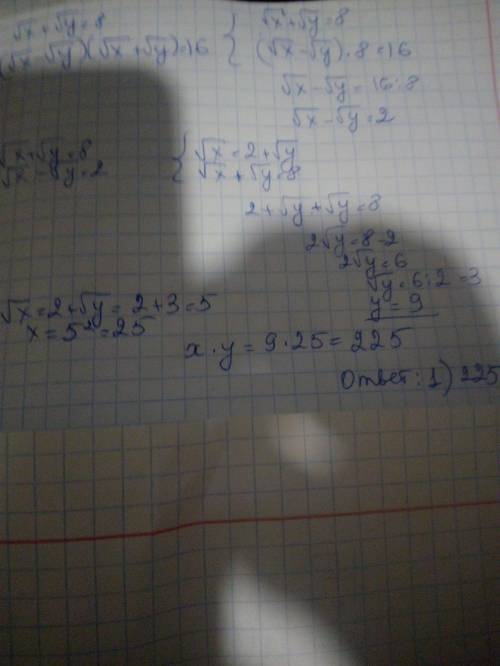 √x + √y = 8 { √x + √y = 8
(√x - √y)(√x + √y) = 16 (√x - √y) · 8 = 16
√x - √y = 16 : 8
√x - √y = 2
√x + √y = 8 { √x = 2 + √y
√x - √y = 2 √x + √y = 8
2 + √y + √y = 8
2√y = 8 - 2
2√y = 6
√y = 6 : 2 = 3
y = 9
√x = 2 + √y = 2 + 3 = 5
x = 5² = 25
x · y = 9 · 25 = 225
Ответ: 1) 225